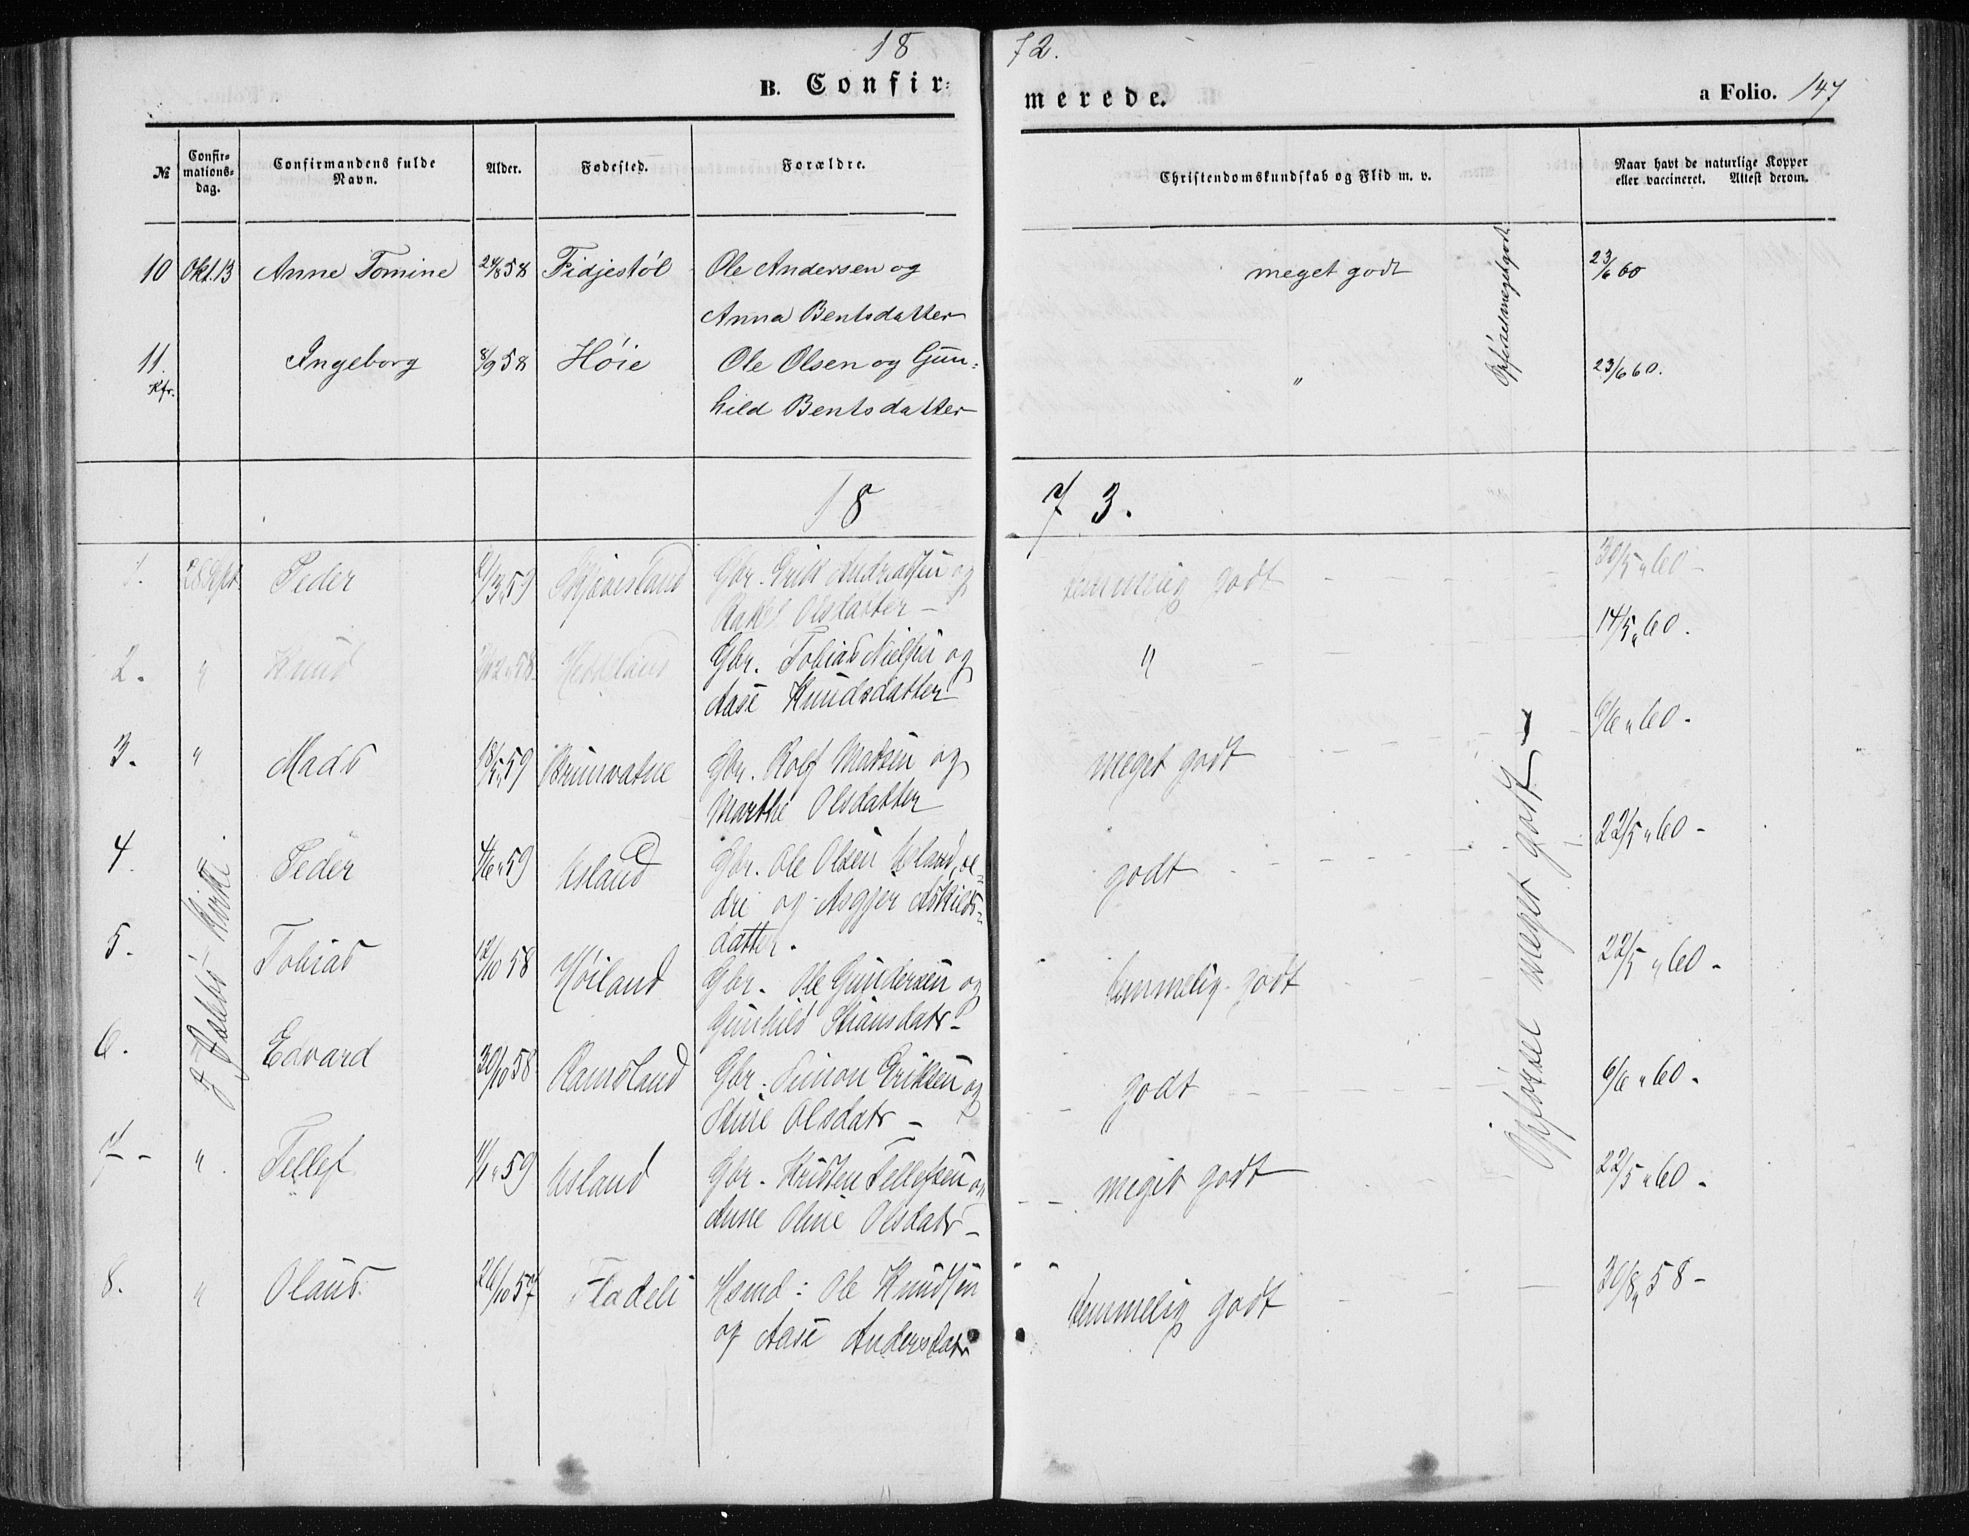 18 72.
B. Confirmerede. a Folio. 147
№ Confirmationsdag. Confirmandens fulde Navn. Alder. Fødested. Forældre. Christendomskundskab og Flid m. v. Naar havt de naturlige Kopper eller vaccineret. Attest derom.
10 Okt. 13 Anne Tomine 24/8 58 Fidjestøl Ole Andersen og meget godt 23/6 60
Anna Bentsdatter
11. Ingeborg 8/9 58 Høie Ole Olsen og Gun- " 23/6 60.
Kfr. hild Bentsdatter
Opførsel meget godt.
18 73.
1. 28 Sept Peder /3 59 Gbr. Erik Andreassen og temmelig godt 30/5 60 -
Rakel Olsdatter -
2. " Knud Gbr. Tobias Nielsen og " 14/5 60.
Aase Knudsdatter
3. " Mads 18/5 59 Brunvatne Gbr. Rolf Madsen og meget godt 6/6 60.
Marthe Olsdatter
4. Peder 4/6 59 Usland Gbr. Ole Olsen Usland, æl- godt 22/5 60 -
dre og Asgjer Askilds-
datter.
5. Tobias 12/10 58 Høiland Gbr. Ole Gundersen og temmelig godt 22/5 60 -
Gunhild Stiansdatr -
6. Edvard 30/10 58 Ramsland Gbr. Simon Eriksen og godt 6/6 60.
Stine Olsdatr -
7 - " Tellef 11/1 59 Usland Gbr. Kristen Tellefsen og meget godt 22/5 60 -
Anne Oline Olsdatr -
8. " Olaus 26/10 57 Fladeli Hsmd: Ole Knudsen temmelig godt 30/8 58 -
og Aase Andersdatr
Kirke
Opførsel meget godt -